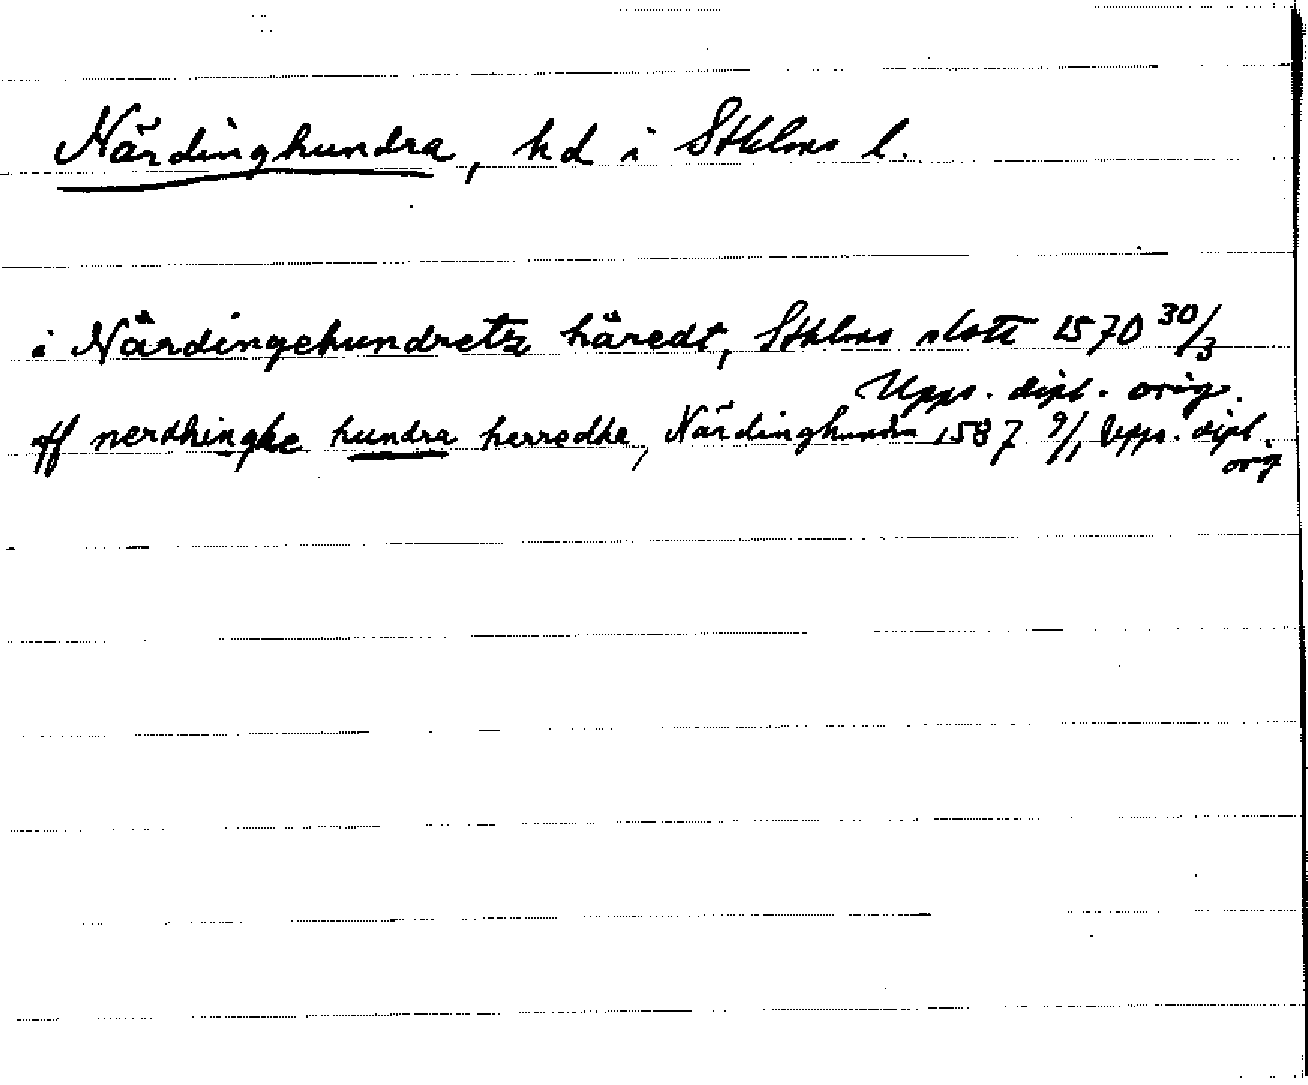 Närdinghundra, hd i Sthlms l.
i Närdingehundretz häredt, Sthlms slott 1570 30/3
Upps. dipl. orig.
off nerdhingke hundra herredhe, Närdinghundra 1587 9/1 Upps. dipl.
orig